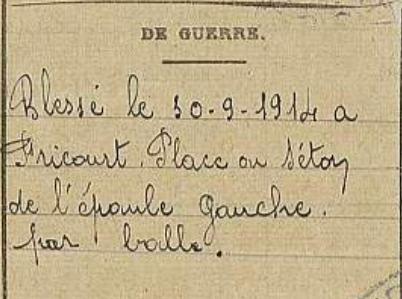 DE GUERRE.
Blessé le 30-9-1914 a
Fricourt. Place ou Séton
de l'épaule gauche.
par balle.